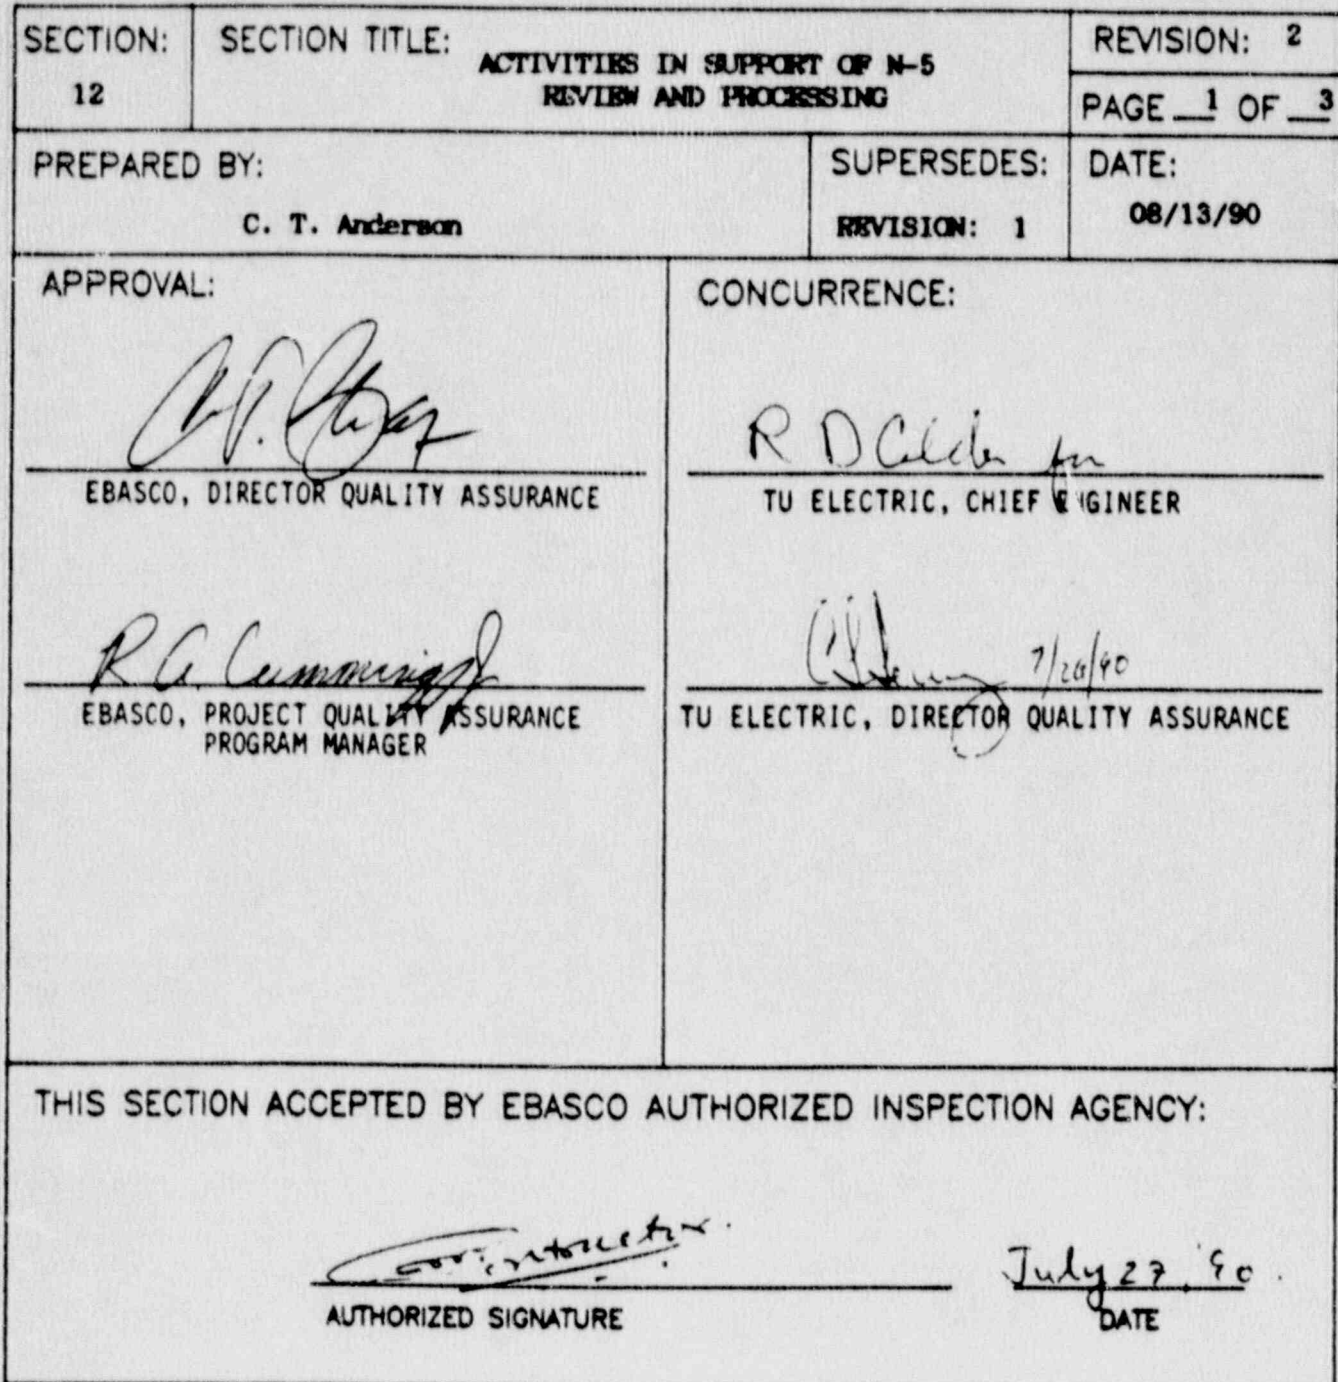 SECTION:
12
SECTION TITLE:
ACTIVITIES IN SUPPORT OF N-5
REVIEW AND PROCESSING
REVISION: 2
PAGE 1 OF 3
PREPARED BY:
C. T. Anderson
SUPERSEDES:
REVISION: 1
DATE:
08/13/90
APPROVAL:
EBASCO, DIRECTOR QUALITY ASSURANCE
R A. Cummings Jr
EBASCO, PROJECT QUALITY ASSURANCE
PROGRAM MANAGER
CONCURRENCE:
R D Calder for
TU ELECTRIC, CHIEF ENGINEER
7/26/90
TU ELECTRIC, DIRECTOR QUALITY ASSURANCE
THIS SECTION ACCEPTED BY EBASCO AUTHORIZED INSPECTION AGENCY:
AUTHORIZED SIGNATURE
July 27, 90.
DATE